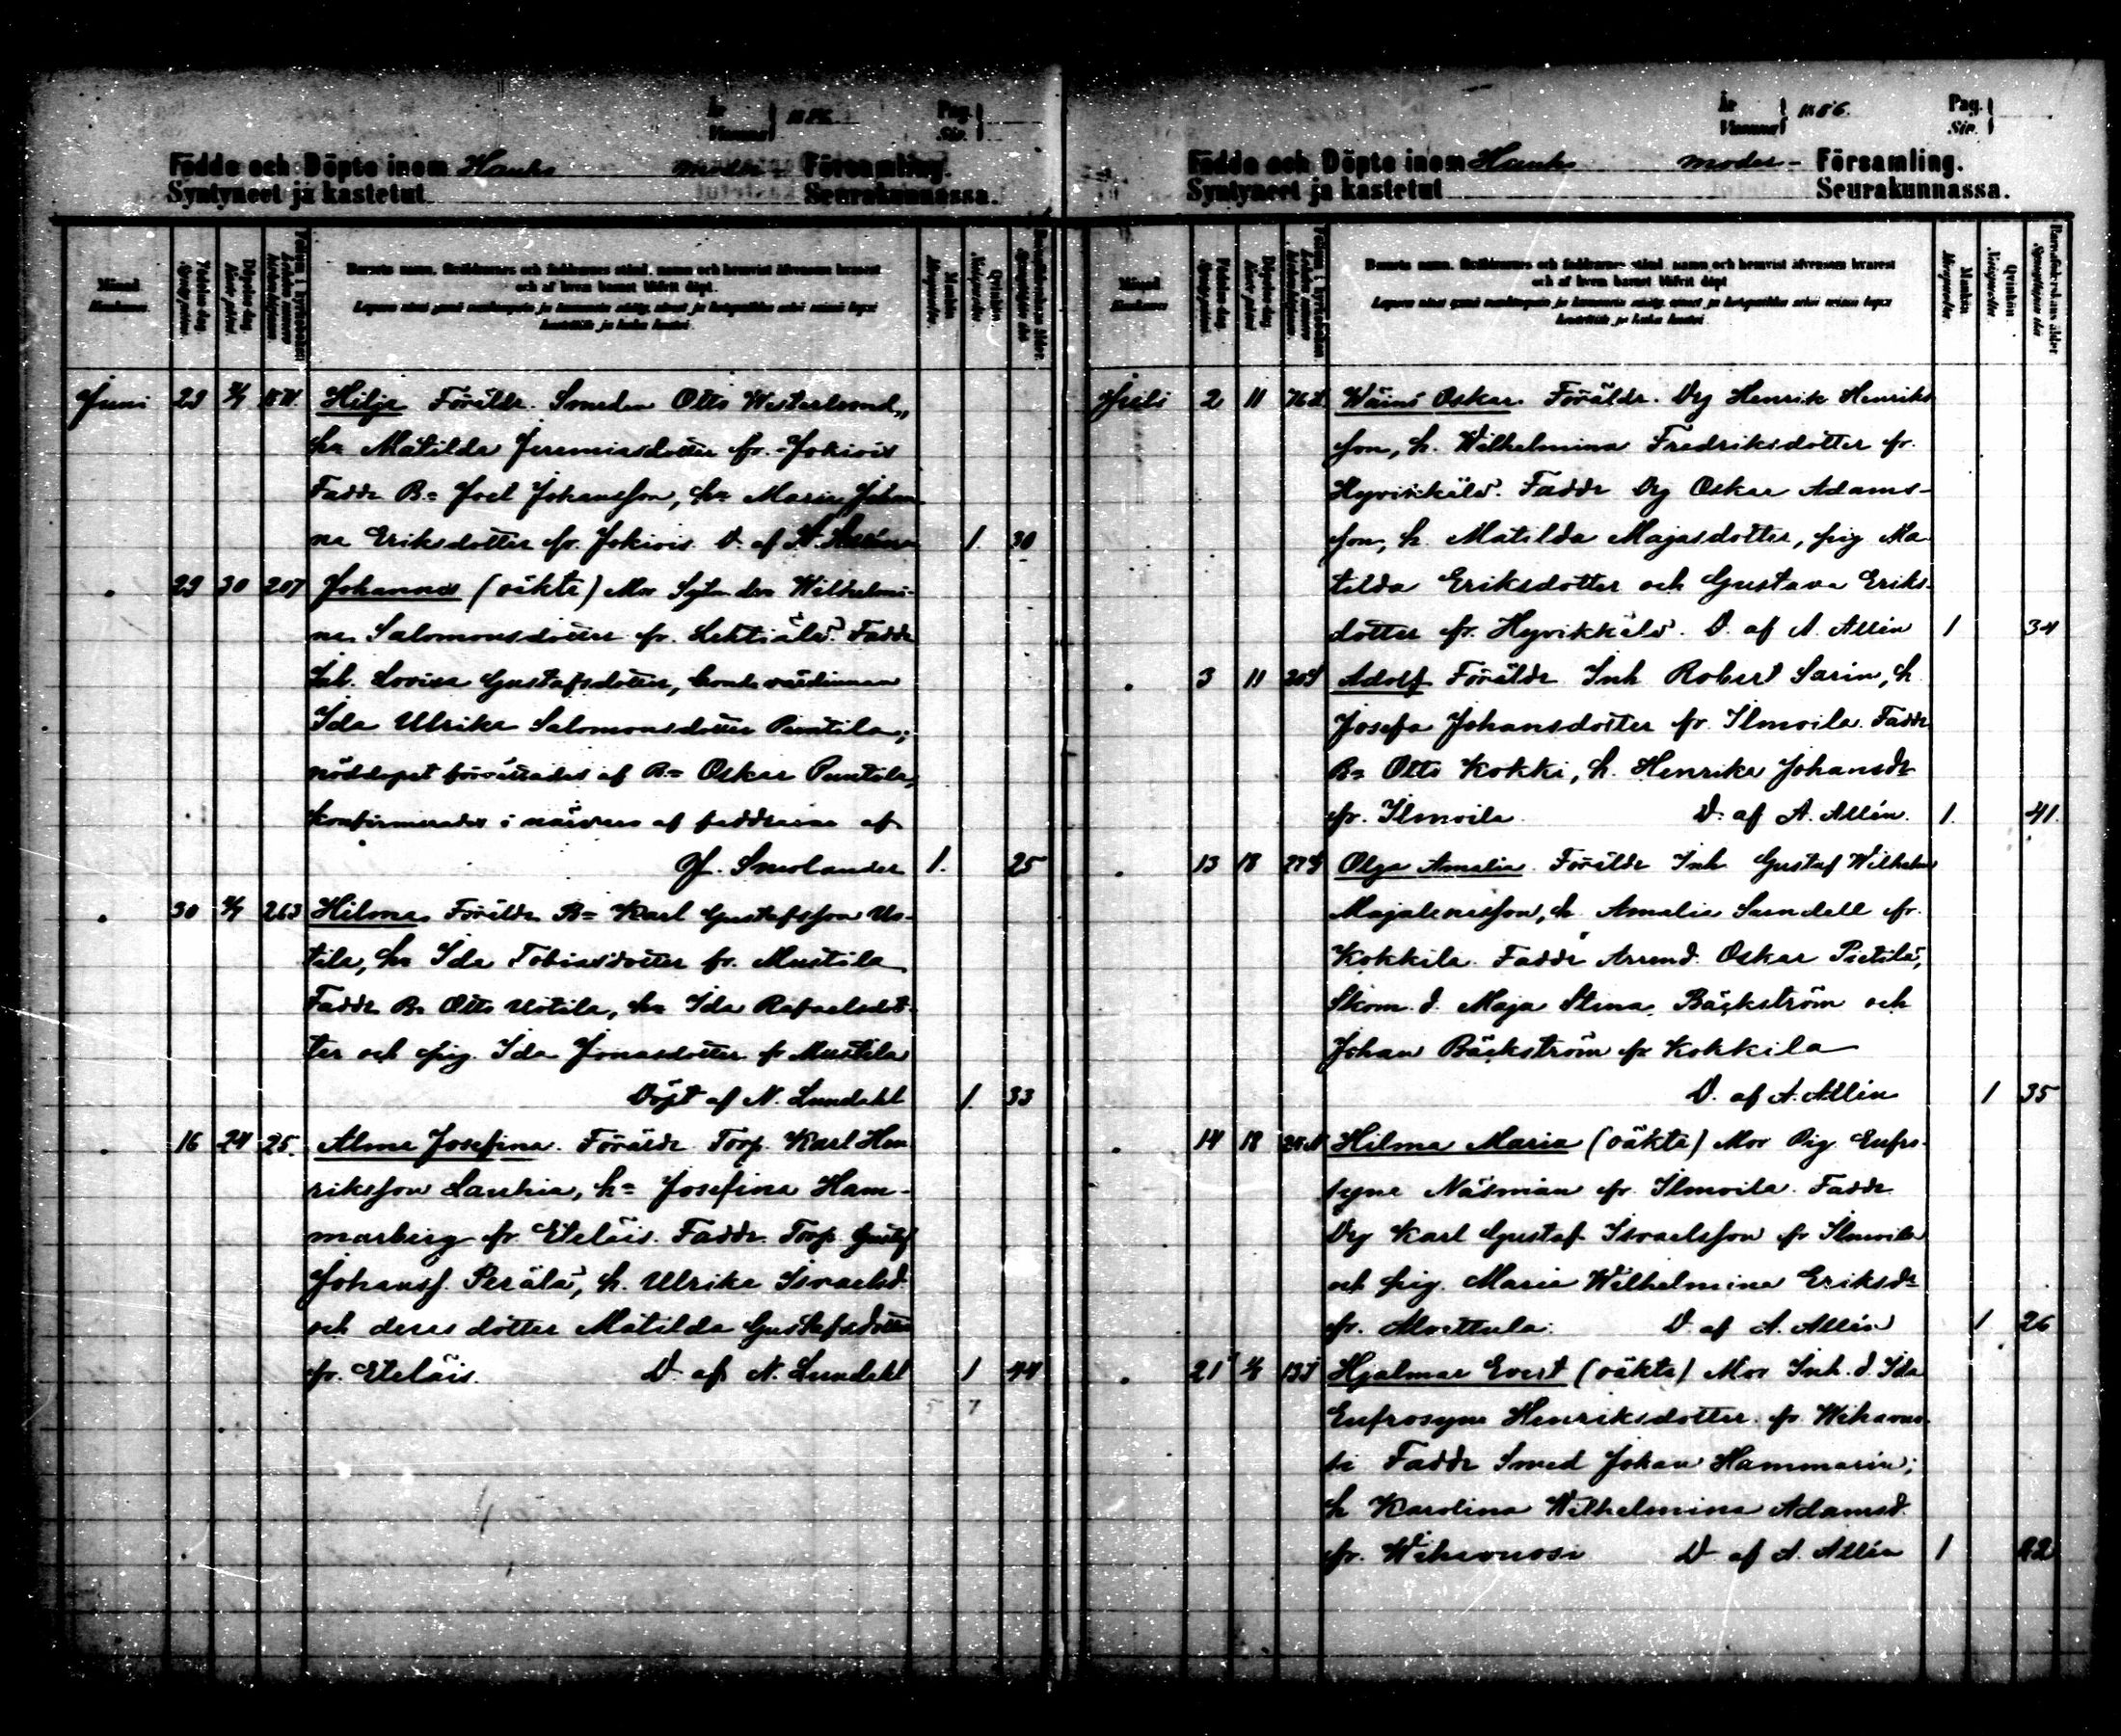 År
Vuonna } 1886.
Pag.
Siv.
Födde och Döpte inom Hauho moder- Församling.
Syntyneet ja kastetut Seurakunnassa.
Månad
Kuukausi
Födelse dag
Syntymä päivä
Döpelse dag
Kaste päivä
Barnets namn, föräldrarnes och faddrarnes stånd, namn och hemvist äfvensom hvarest
och af hvem barnet blifvit döpt.
Mankön
Miespuolta
Qvinkön
Naispuolta
Juni 29 4/7 157. Hilja Föräldr. Smeden Otto Westerlund,
h= Matilda Jeremiasdotter fr. Jokiois
Fadde B= Joel Johansson, h= Maria Johan
na Eriksdotter fr. Jokiois. D. af A. Allén 1. 30
29 30 207 Johannes (oäkta) Mor Sytn. dra Wilhelmi-
na Salomonsdotter fr. Lehtiälä. Fadde
Inh. Lovisa Gustafsdotter, bondevärdinnan
Ida Ulrika Salomonsdotter Puntila;
nöddopet förrättades af B= Oskar Puntila,
konfirmerades i närvaro af faddrarne af
Gf. Smolander 1. 25
30 4/7 263 Hilma Föräldr B= Karl Gustafsson Uo-
tila, h= Ida Tobiasdotter fr. Mustila
Fadde B= Otto Uotila, h= Ida Rafaelsdot-
ter och pig. Ida Jonasdotter fr Mustila
Döpt af N. Lundahl 1. 33
16 24 25. Alma Josefina. Föräldr Torp. Karl Hen
riksson Laurhia, h= Josefina Ham-
marberg fr Eteläis. Fadde. Torp. Gustaf
Johanss. Perälä, h. Ulrika Israelsd.
och deras dotter Matilda Gustafsdotter
fr. Eteläis. D. af N. Lundahl 1 44
5 7
År
Vuonna } 1886.
Pag.
Siv.
Födde och Döpte inom Hauho moder- Församling.
Syntyneet ja kastetut Seurakunnassa.
Månad
Kuukausi
Födelse dag
Syntymä päivä
Döpelse dag
Kaste päivä
Barnets namn, föräldrarnes och faddrarnes stånd, namn och hemvist äfvensom hvarest
och af hvem barnet blifvit döpt
Mankön
Miespuolta
Qvinkön
Naispuolta
Barnaföderskans ålder
Juli 2 11 762 Wäinö Oskar. Föräldr. Drg Henrik Henriks
son, h. Wilhelmina Fredriksdotter fr.
Hyvikkälä. Fadde Drg Oskar Adams-
son, h. Matilda Majasdotter, pig Ma
tilda Eriksdotter och Gustava Eriks-
dotter fr. Hyvikkälä. D. af A. Allén 1 34
3 11 209 Adolf Föräldr Inh Robert Sarin, h.
Josefa Johansdotter fr. Ilmoila. Fadde
B= Otto Kokki, h. Henrika Johansdr
fr. Ilmoila D. af A. Allén. 1. 41.
13 18 279 Olga Amalia. Föräldr Inh Gustaf Wilhelm
Majalenasson, h. Amalia Sundell fr.
Kokkila. Fadde Arrend. Oskar Pietilä,
Skom. d. Maja Stina Bäckström och
Johan Bäckström fr Kokkila
D. af A. Allén 1 35
14 18 Hilma Maria (oäkta) Mor Pig Eufro-
syne Näsman fr. Ilmoila. Fadde
Drg Karl Gustaf Israelsson fr Ilmoila
och pig. Maria Wilhelmina Eriksdr
fr. Alvettula. D. af A. Allén 1 26
21 133 Hjalmar Evert (oäkta) Mor Inh. d. Ida
Eufrosyne Henriksdotter fr. Wihavuo-
si Fadde Smed Johan Hammarin;
h Karolina Wilhelmina Adamsd.
fr. Wihavuosi D. af A. Allén 1 22